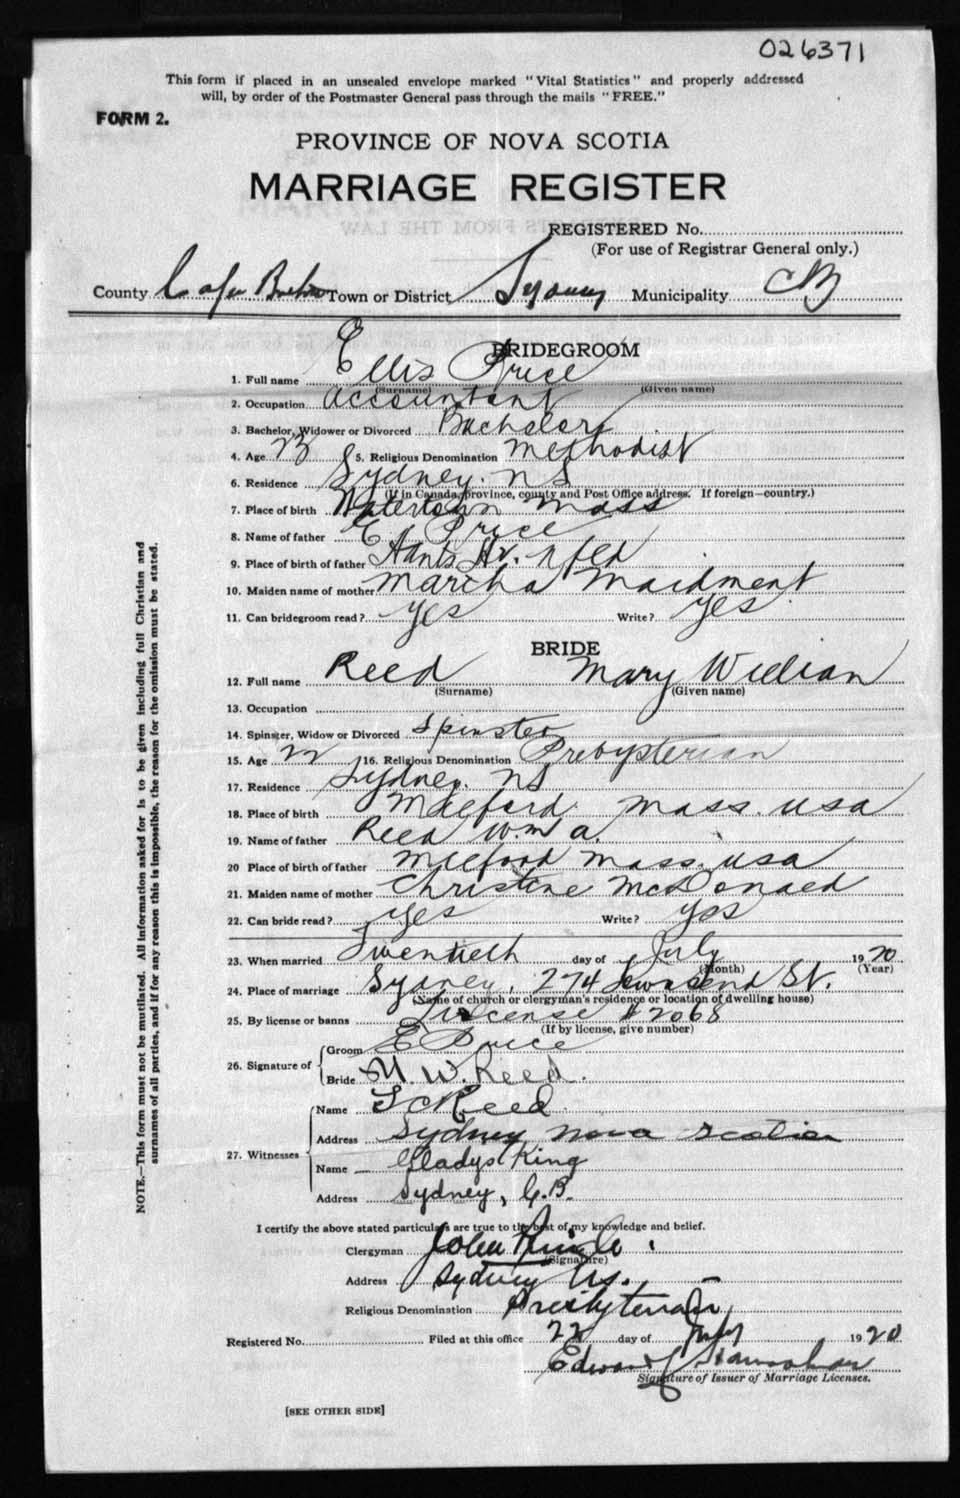 026371
This form if placed in an unsealed envelope marked "Vital Statistics" and properly addressed
will, by order of the Postmaster General pass through the mails "FREE."
FORM 2.
PROVINCE OF NOVA SCOTIA
MARRIAGE REGISTER
REGISTERED No.
(For use of Registrar General only.)
County Cape Breton Town or District Sydney Municipality CB
BRIDEGROOM
1. Full name Ellis Price
(Surname) (Given name)
2. Occupation accountant
3. Bachelor, Widower or Divorced Bachelor
4. Age 23 5. Religious Denomination Methodist
6. Residence Sydney. NS
(If in Canada, province, county and Post Office address. If foreign—country.)
7. Place of birth Watertown Mass
8. Name of father E Price
9. Place of birth of father Hants Hr. Nfld
10. Maiden name of mother Martha Maidment
11. Can bridegroom read? Yes Write? Yes
BRIDE
12. Full name Reed Mary Willian
(Surname) (Given name)
13. Occupation
14. Spinster, Widow or Divorced Spinster
15. Age 22 16. Religious Denomination Presbyterian
17. Residence Sydney. NS
18. Place of birth Milford Mass. USA
19. Name of father Reed Wm A.
20 Place of birth of father Milford Mass. USA
21. Maiden name of mother Christine McDonald
22. Can bride read? Yes Write? Yes
23. When married Twentieth day of July 1920
(Month) (Year)
24. Place of marriage Sydney, 274 Townsend St.
(Name of church or clergyman's residence or location of dwelling house)
25. By license or banns License #2068
(If by license, give number)
26. Signature of Groom E Price
Bride M. W. Reed.
27. Witnesses Name Reed
Address Sydney Nova Scotia
Name Gladys King
Address Sydney, C.B.
I certify the above stated particulars are true to the best of my knowledge and belief.
Clergyman John
(Signature)
Address Sydney NS.
Religious Denomination Presbyterian
Registered No. Filed at this office 22 day of July 1920
Edward
Signature of Issuer of Marriage Licenses.
[SEE OTHER SIDE]
NOTE.—This form must not be mutilated. All information asked for is to be given including full Christian and
surnames of all parties, and if for any reason this is impossible, the reason for the omission must be stated.